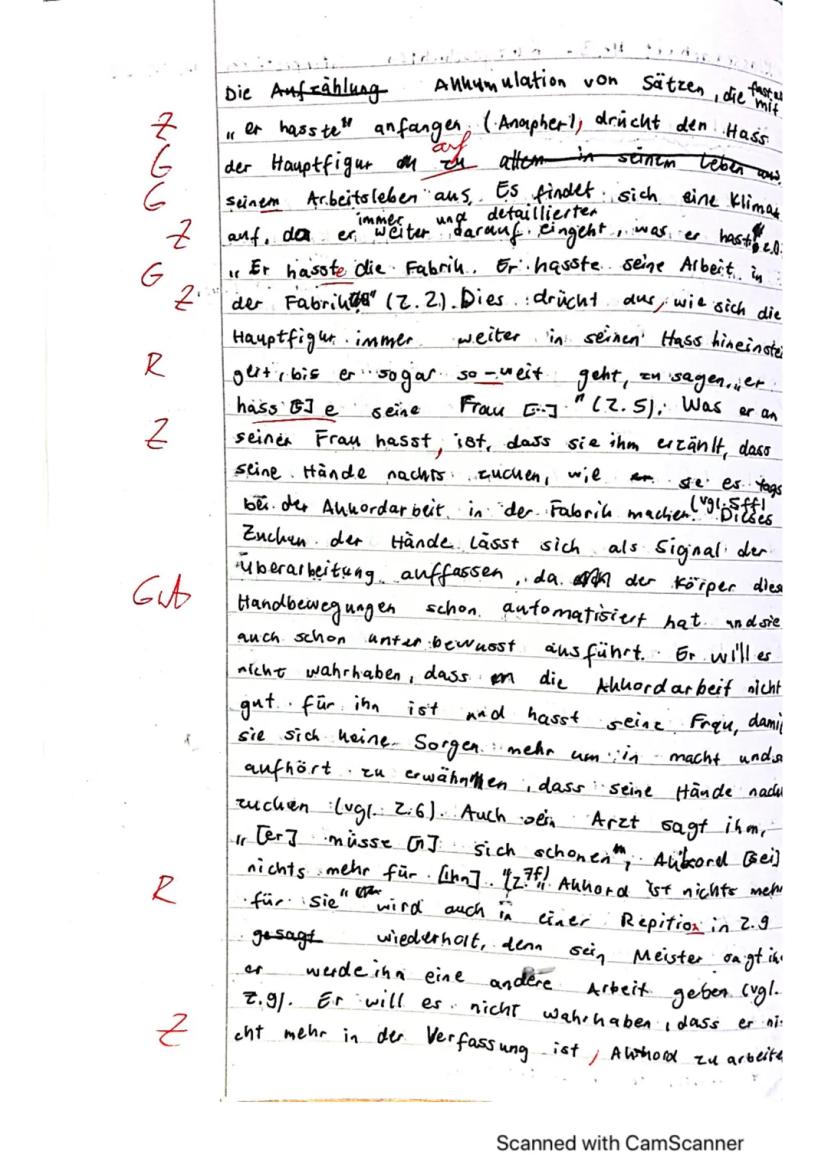 Die Aufzählung Akkumulation von Sätzen, die fast alle mit
Z „er hasste" anfangen (Anapher), drückt den Hass
G der Hauptfigur an zu auf allem in seinem Leben aus
G seinem Arbeitsleben aus. Es findet sich eine Klimax
Z auf, da er immer weiter und detaillierter darauf eingeht, was er hasst, z.B.
G „Er hasste die Fabrik. Er hasste seine Arbeit in
Z der Fabrik" (Z.2). Dies drückt aus, wie sich die
Hauptfigur immer weiter in seinen Hass hineinstei
R gert, bis er sogar so weit geht, zu sagen, „er
hass[t]e seine Frau [...]" (Z.5). Was er an
Z seiner Frau hasst, ist, dass sie ihm erzählt, dass
seine Hände nachts zucken, wie sie es tags
bei der Akkordarbeit in der Fabrik machen (vgl. 5ff). Dieses
Zucken der Hände lässt sich als Signal der
Überarbeitung auffassen, da der Körper diese
Gut Handbewegungen schon automatisiert hat und sie
auch schon unterbewusst ausführt. Er will es
nicht wahrhaben, dass die Akkordarbeit nicht
gut für ihn ist und hasst seine Frau, dami
sie sich keine Sorgen mehr um in macht und
aufhört zu erwähnen, dass seine Hände nach
zucken (vgl. Z.6). Auch sein Arzt sagt ihm,
„[er] müsse [] sich schonen", Akkord [sei]
nichts mehr für [ihn]" (Z.7f). „Akkord ist nichts meh
R für sie" wird auch in einer Repition in Z.9
gesagt wiederholt, denn sein Meister sagt ih
er werde ihn eine andere Arbeit geben (vgl.
Z.9). Er will es nicht wahrhaben, dass er ni
Z cht mehr in der Verfassung ist, Akkord zu arbeite
Scanned with CamScanner